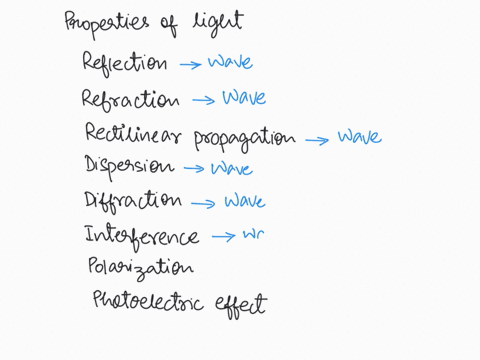 Properties of light
Reflection → wave
Refraction → wave
Rectilinear propagation → wave
Dispersion → wave
Diffraction → wave
Interference → wr
Polarization
Photoelectric effect